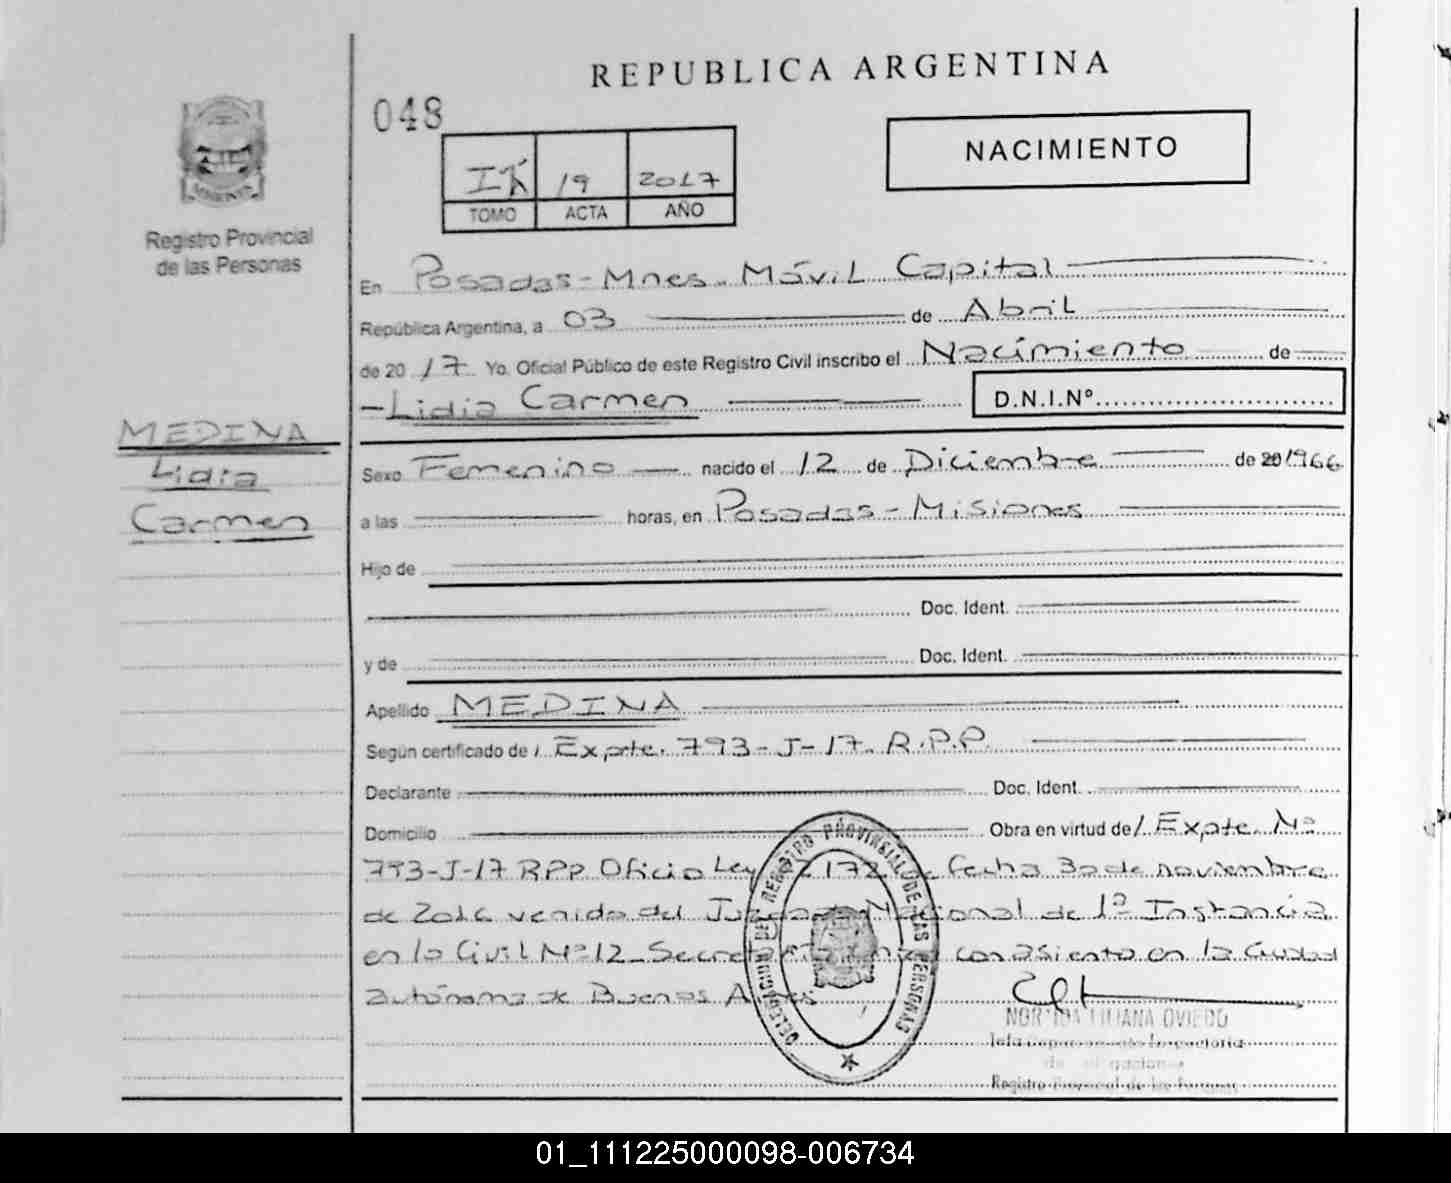 REPUBLICA ARGENTINA
048
NACIMIENTO
19 2017
TOMO ACTA AÑO
MISIONES
Registro Provincial
de las Personas
En Posadas - Mnes. Móvil Capital
República Argentina, a 03 de Abril
de 2017 Yo. Oficial Público de este Registro Civil inscribo el Nacimiento de
Lidia Carmen D.N.I.Nº
MEDINA
Lidia
Carmen
Sexo Femenino nacido el 12 de Diciembre de 1966
a las horas, en Posadas - Misiones
Hijo de
Doc. Ident.
y de Doc. Ident.
Apellido MEDINA
Según certificado de Expte. 793-J-17 R.P.P.
Declarante Doc. Ident.
Domicilio Obra en virtud de Expte. Nº
793-J-17 RPP Oficio Ley 172 Fecha 30 de noviembre
de 2016 venido del Juzgado Nacional de 1º Instancia
en lo Civil Nº 12 - con asiento en la Ciudad
autónoma de Buenos Aires
DELEGACION DEL REGISTRO PROVINCIAL DE LAS PERSONAS
LILIANA OVIEDO
Registro Provincial de las Personas
01_111225000098-006734